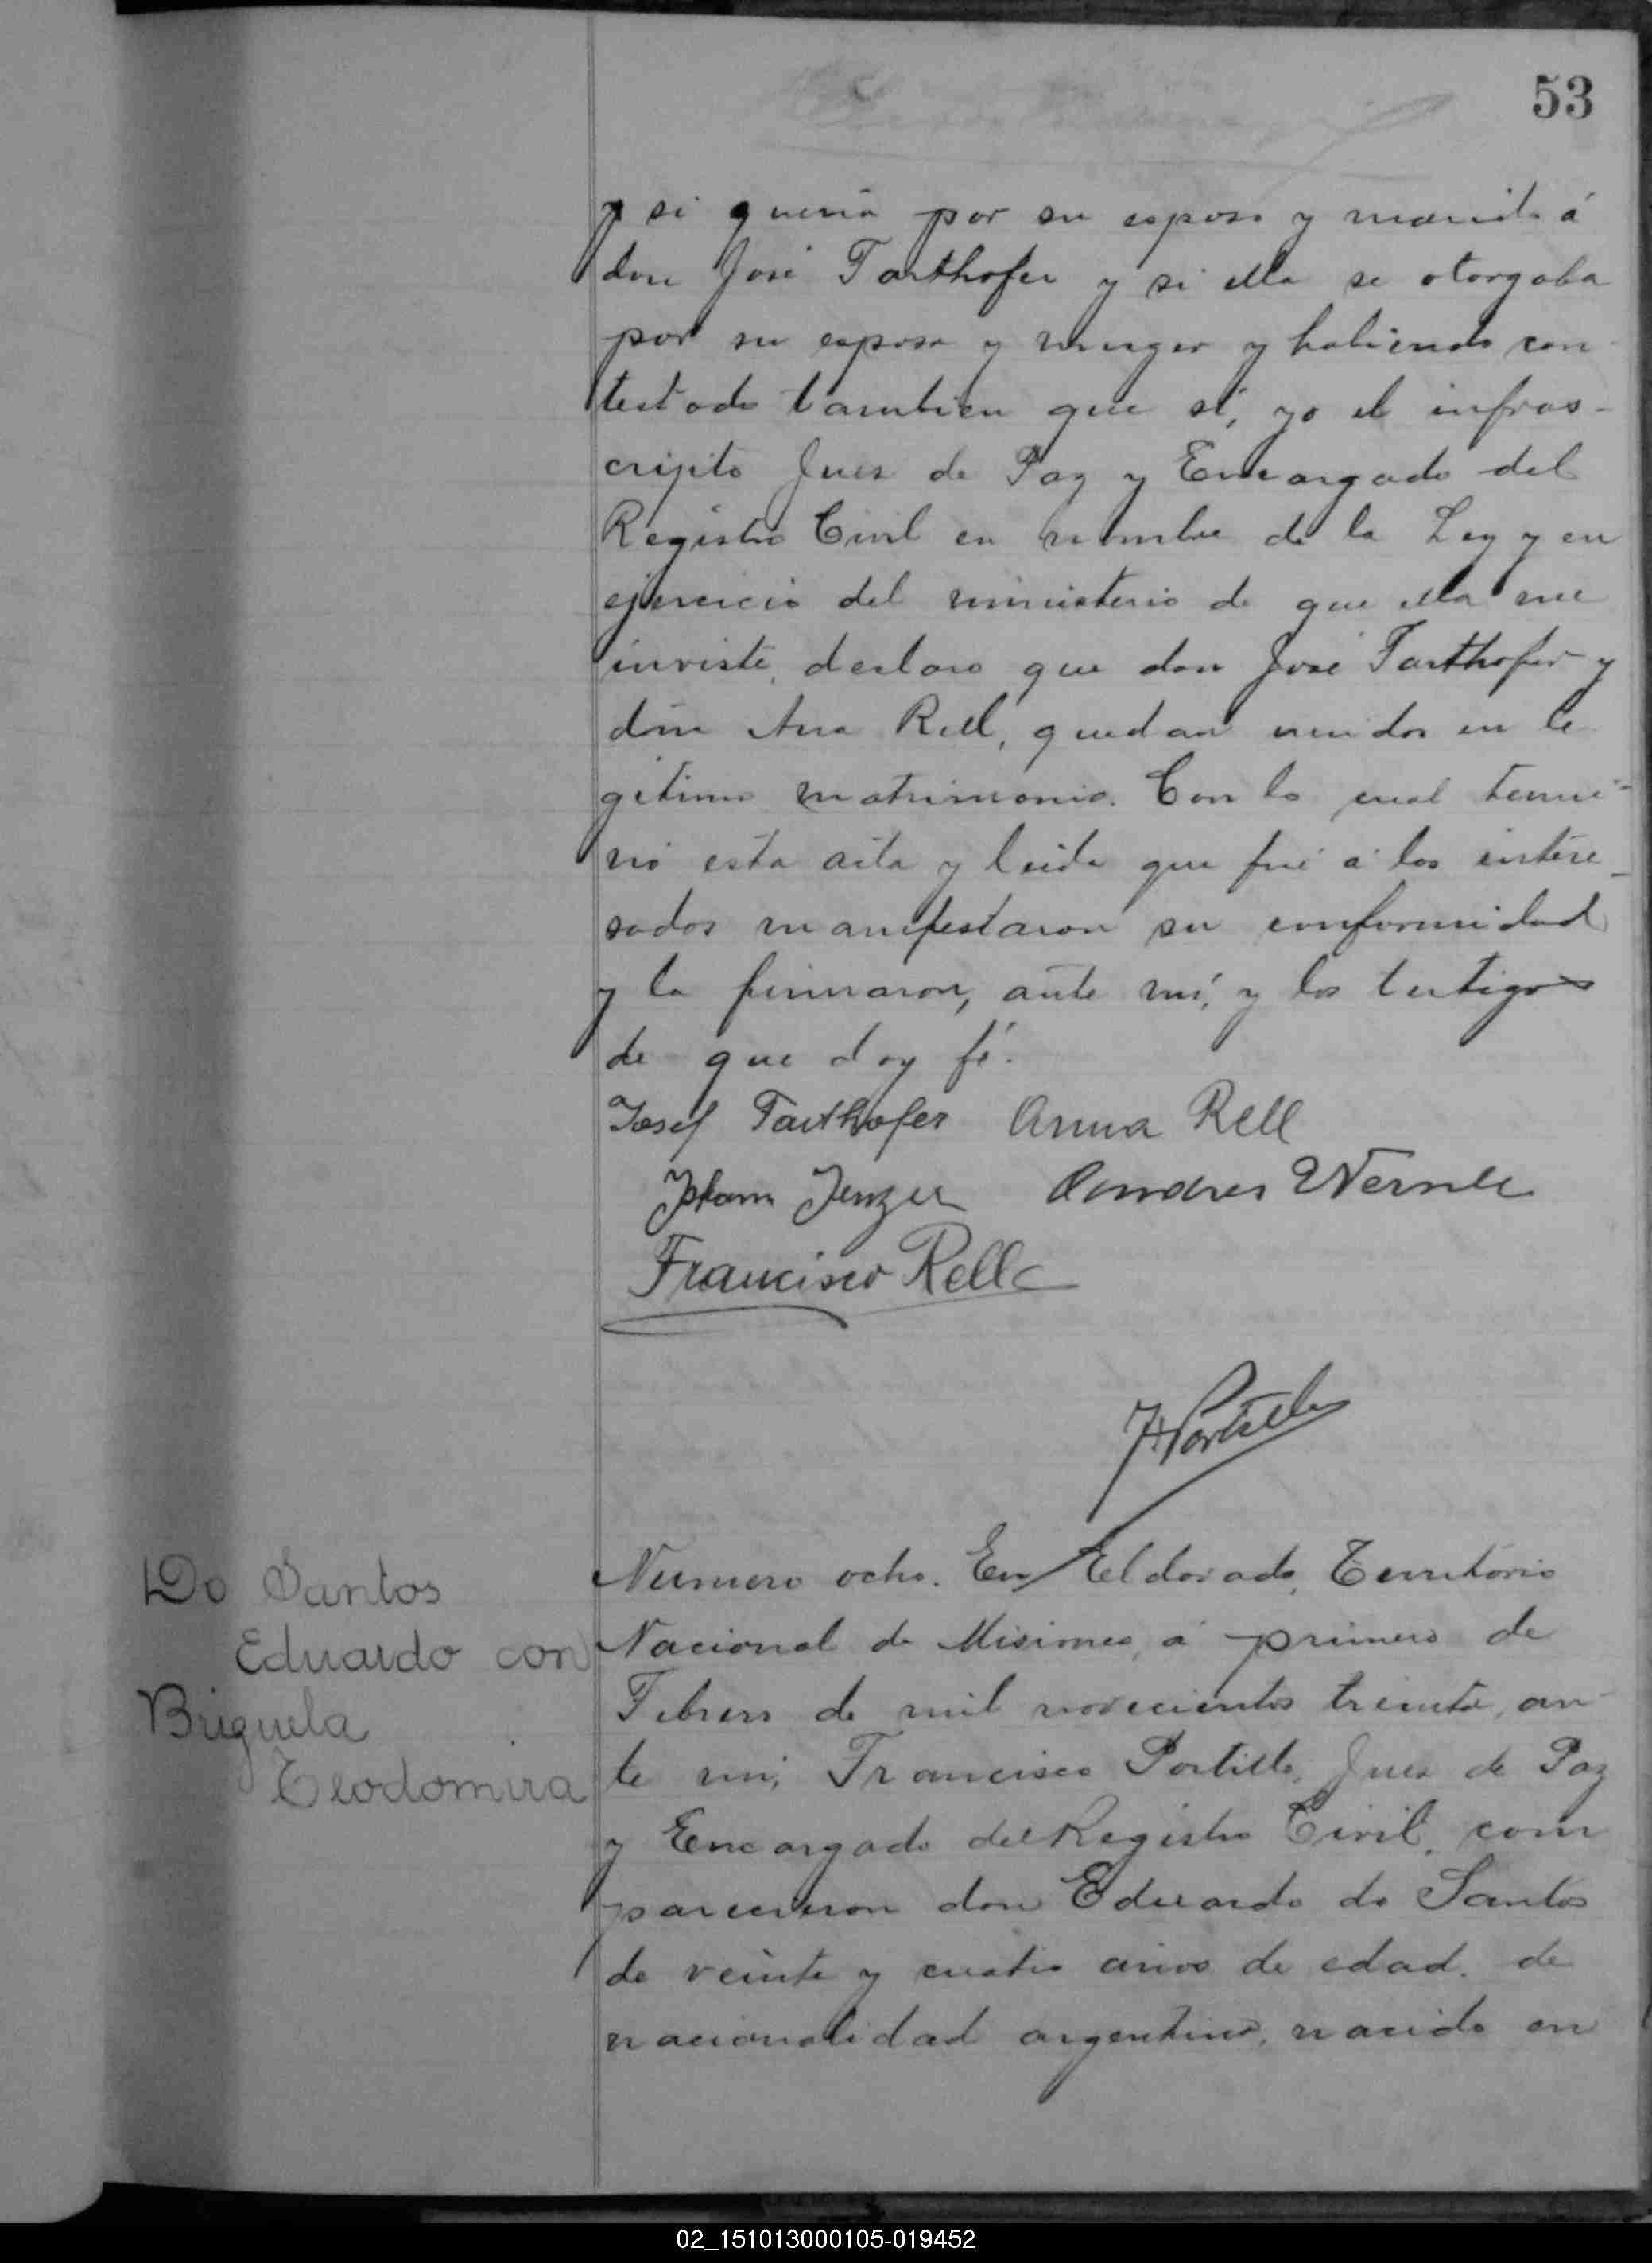 53
y si queria por su esposo y marido á
don José Tarthofer y si ella se otorgaba
por su esposa y muger y habiendo con
testado tambien que sí, yo el infras-
cripto Juez de Paz y Encargado del
Registro Civil en nombre de la Ley y en
ejercicio del ministerio de que ella me
inviste, declaro que don José Tarthofer y
doña Ana Rell, quedan unidos en le
gitimo matrimonio. Con lo cual termi-
nó esta acta y leida que fué á los intere_
sados manifestaron su conformidad
y la firmaron, ante mí, y los testigos
de que doy fé.
Josef Tarthofer Anna Rell
Johann Jenzer Andres Wernle
Francisco Rell
FPortillo
Do Santos
Eduardo con
Briguela
Teodomira
Numero ocho. En Eldorado, Territorio
Nacional de Misiones, á primero de
Febrero de mil novecientos treinta, an
te mi, Francisco Portillo, Juez de Paz
y Encargado del Registro Civil, com
parecieron don Eduardo do Santos
de veinte y cuatro años de edad, de
nacionalidad argentino, nacido en
02_151013000105-019452